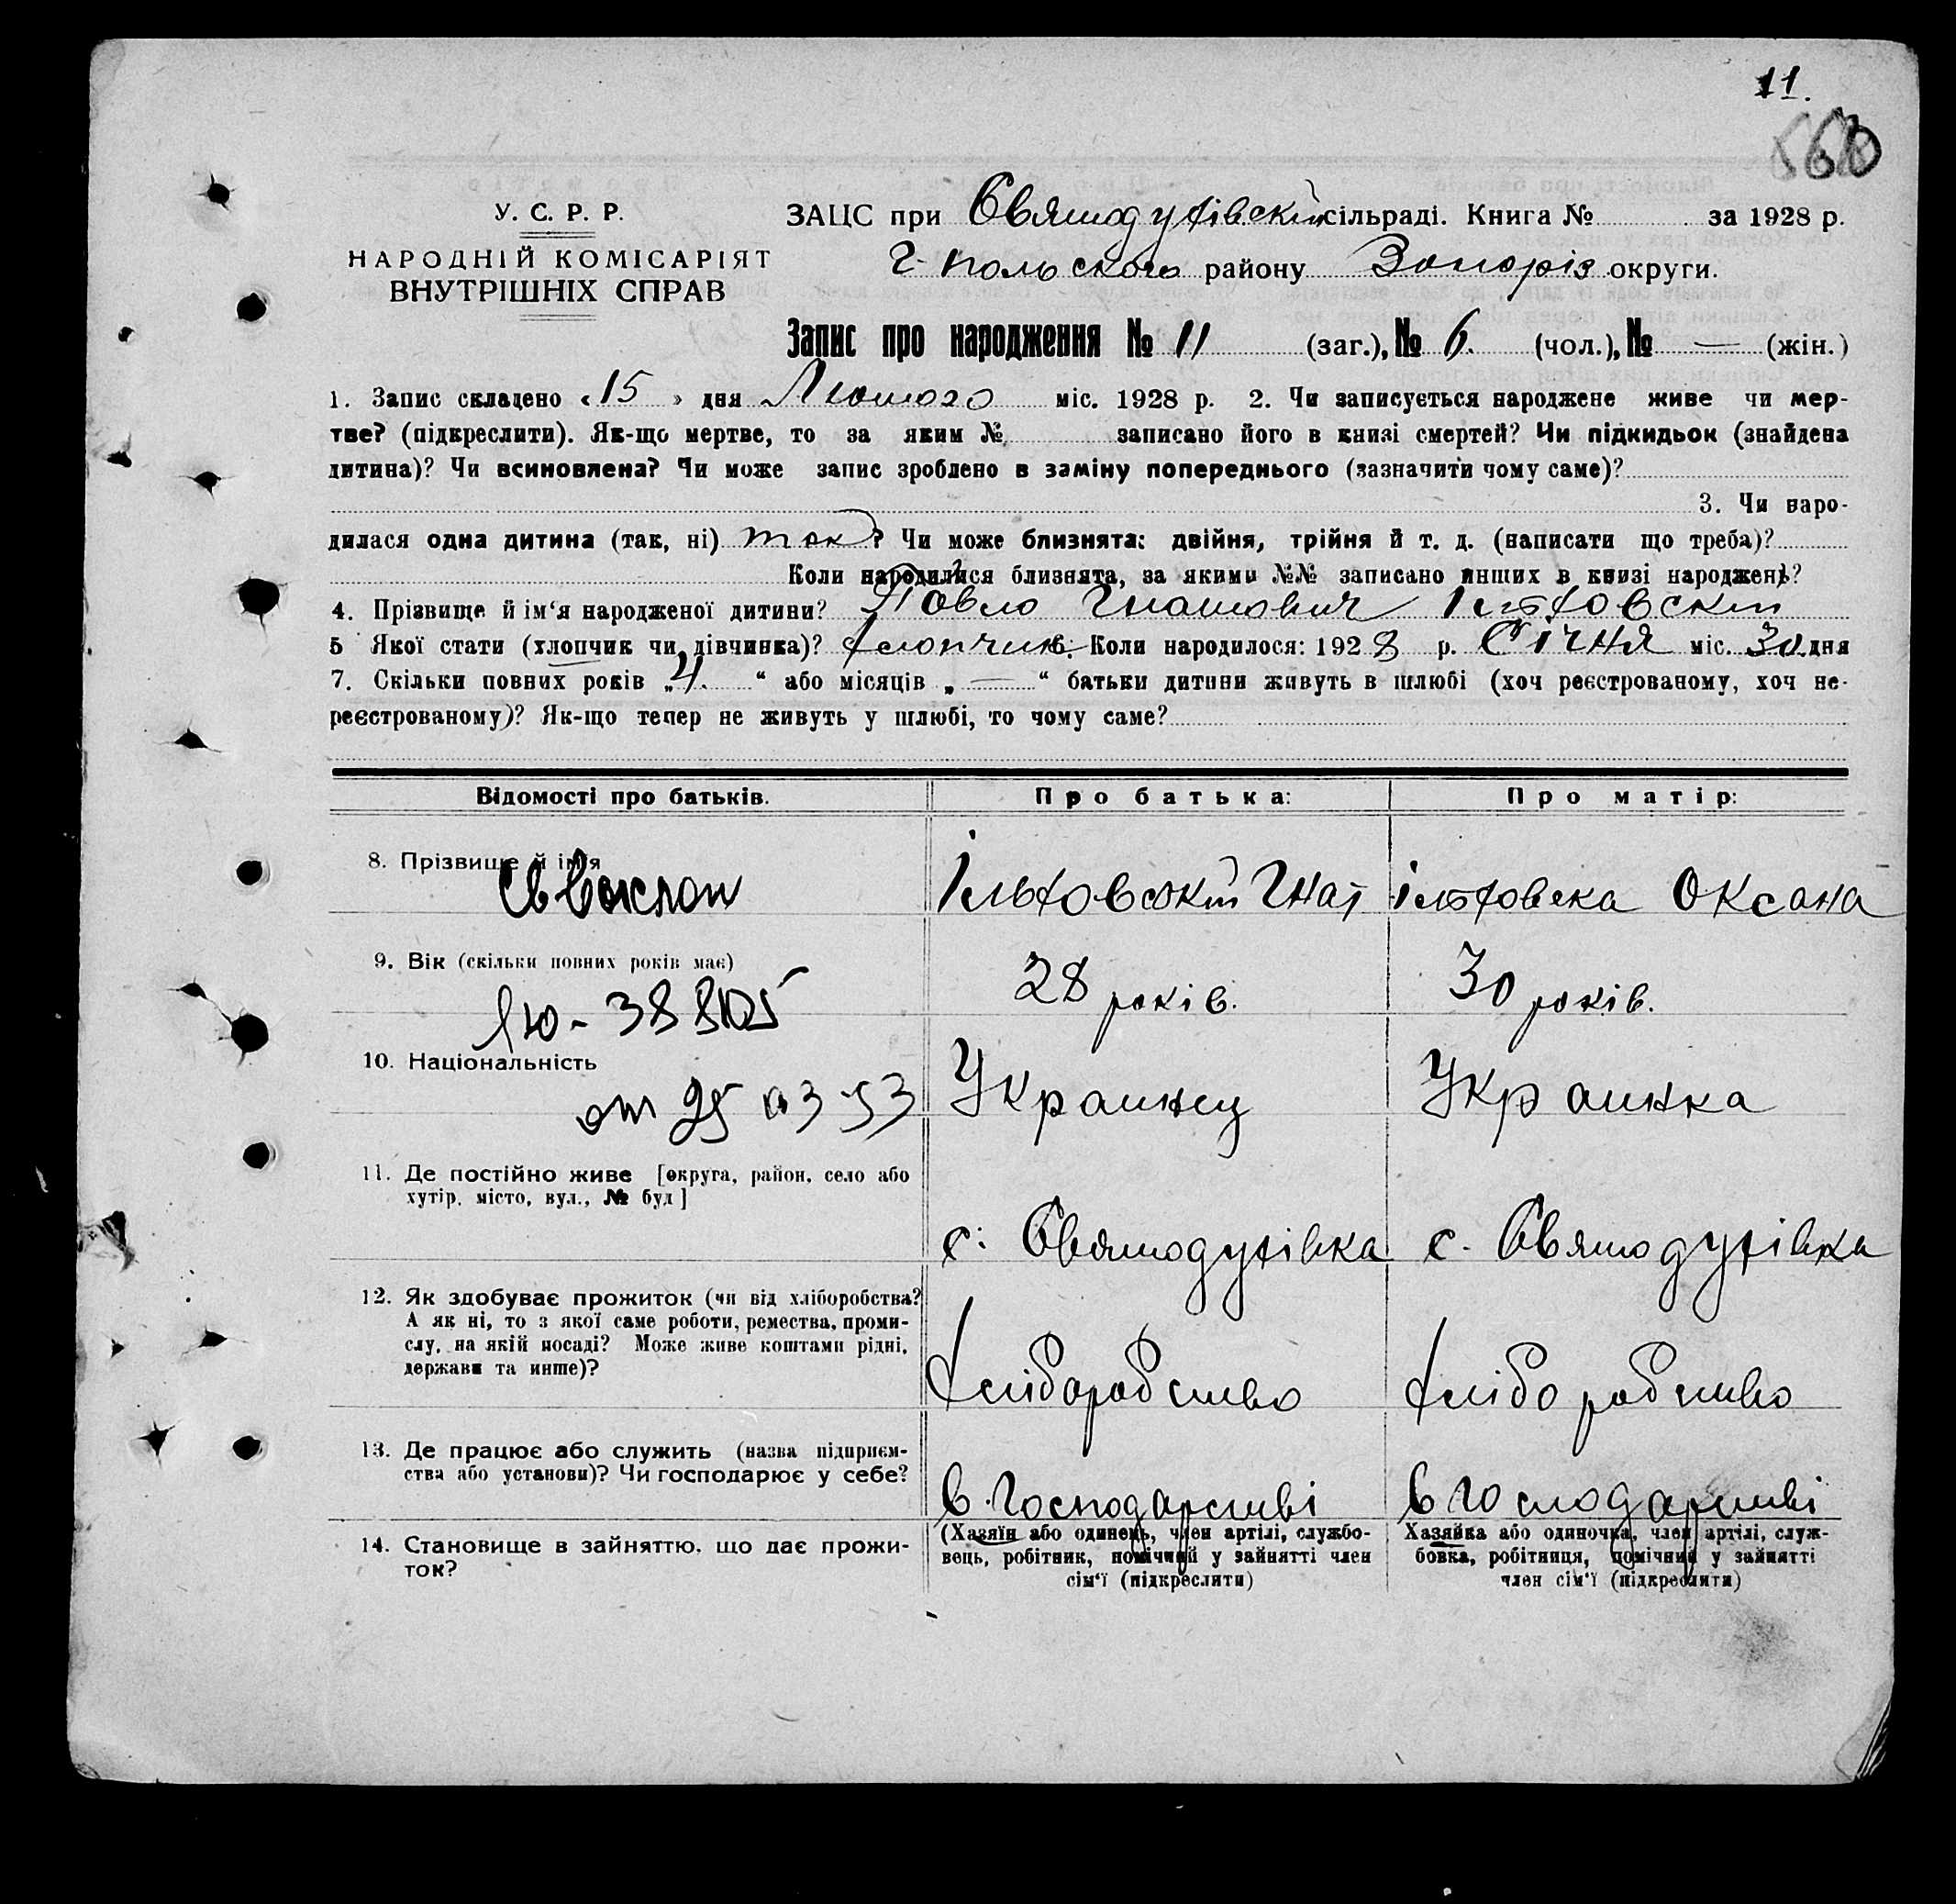 11.
У. С. Р. Р.
НАРОДНІЙ КОМІСАРІЯТ
ВНУТРІШНІХ СПРАВ
ЗАЦС при Святодухівскій сільраді. Книга № за 1928 р.
Г-польского району Запоріз. округи.
Запис про народження № 11 (заг.), № 6. (чол.), № — (жін.)
1. Запис складено «15» дня Лютого міс. 1928 р. 2. Чи записується народжене живе чи мер-
тве? (підкреслити). Як-що мертве, то за яким № записано його в книзі смертей? Чи підкидьок (знайдена
дитина)? Чи всиновлена? Чи може запис зроблено в заміну попереднього (зазначити чому саме)?
3. Чи наро-
дилася одна дитина (так, ні) так? Чи може близнята: двійня, трійня й т. д. (написати що треба)?
Коли народилися близнята, за якими №№ записано инших в книзі народжень?
4. Прізвище й ім‘я народженої дитини? Павло Гнатович Ільховскій
5 Якої стати (хлопчик чи дівчинка)? хлопчик 6. Коли народилося: 1928 р. Січня міс. 30 дня
7. Скільки повних років „4.“ або місяців „—“ батьки дитини живуть в шлюбі (хоч реєстрованому, хоч не-
реєстрованому)? Як-що тепер не живуть у шлюбі, то чому саме?
Відомості про батьків. Про батька: Про матір:
8. Прізвище й ім‘я Ільховський Гнат Ільховска Оксана
9. Вік (скільки повних років має) 28 років. 30 років.
10. Національність Украинец Украинка
от 25 03 53
11. Де постійно живе [округа, район, село або
хутір, місто, вул., № буд]
с. Святодухівка с. Святодухівка
12. Як здобуває прожиток (чи від хліборобства?
А як ні, то з якої саме роботи, ремества, проми-
слу, на якій посаді? Може живе коштами рідні,
держави та инше)?
хліборобство хліборобство
13. Де працює або служить (назва підприєм-
ства або установи)? Чи господарює у себе?
в господарстві в господарстві
14. Становище в зайняттю, що дає прожи-
ток?
(Хазяїн або одинець, член артілі, службо-
вець, робітник, помічний у зайнятті член
сім‘ї (підкреслити)
Хазяйка або одиночка, член артілі, служ-
бовка, робітниця, помічний у зайнятті
член сім‘ї (підкреслити)